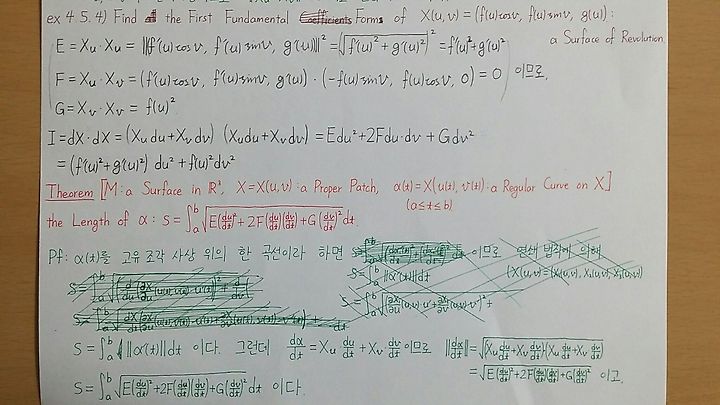 ex 4.5.4) Find the First Fundamental Forms of X(u,v) = (f(u)cosv, f(u)sinv, g(u)) :
a Surface of Revolution.
E = Xu·Xu = ||f'(u)cosv, f'(u)sinv, g'(u)||² = √(f'(u)²+g'(u)²)² = f'(u)²+g'(u)²
F = Xu·Xv = (f'(u)cosv, f'(u)sinv, g'(u))·(-f(u)sinv, f(u)cosv, 0) = 0 이므로,
G = Xv·Xv = f(u)²
I = dX·dX = (Xudu+Xvdv)(Xudu+Xvdv) = Edu²+2Fdu·dv + Gdv²
= (f'(u)²+g'(u)²) du² + f(u)²dv²
Theorem [M: a Surface in R³, X=X(u,v): a Proper Patch, α(t)=X(u(t), v(t)): a Regular Curve on X]
(a≤t≤b)
the Length of α: S = ∫ₐᵇ √(E(du/dt)²+2F(du/dt)(dv/dt)+G(dv/dt)²) dt.
Pf: α(t)를 고유 조각 사상 위의 한 곡선이라 하면 이므로 연쇄 법칙에 의해
S = ∫ₐᵇ ||α'(t)||dt
S = ∫ₐᵇ ||α'(t)||dt 이다. 그런데 dx/dt = Xu du/dt + Xv dv/dt 이므로 ||dx/dt|| = √((Xu du/dt + Xv dv/dt)(Xu du/dt + Xv dv/dt))
= √(E(du/dt)²+2F(du/dt)(dv/dt)+G(dv/dt)²) 이고,
S = ∫ₐᵇ √(E(du/dt)²+2F(du/dt)(dv/dt)+G(dv/dt)²) dt 이다.